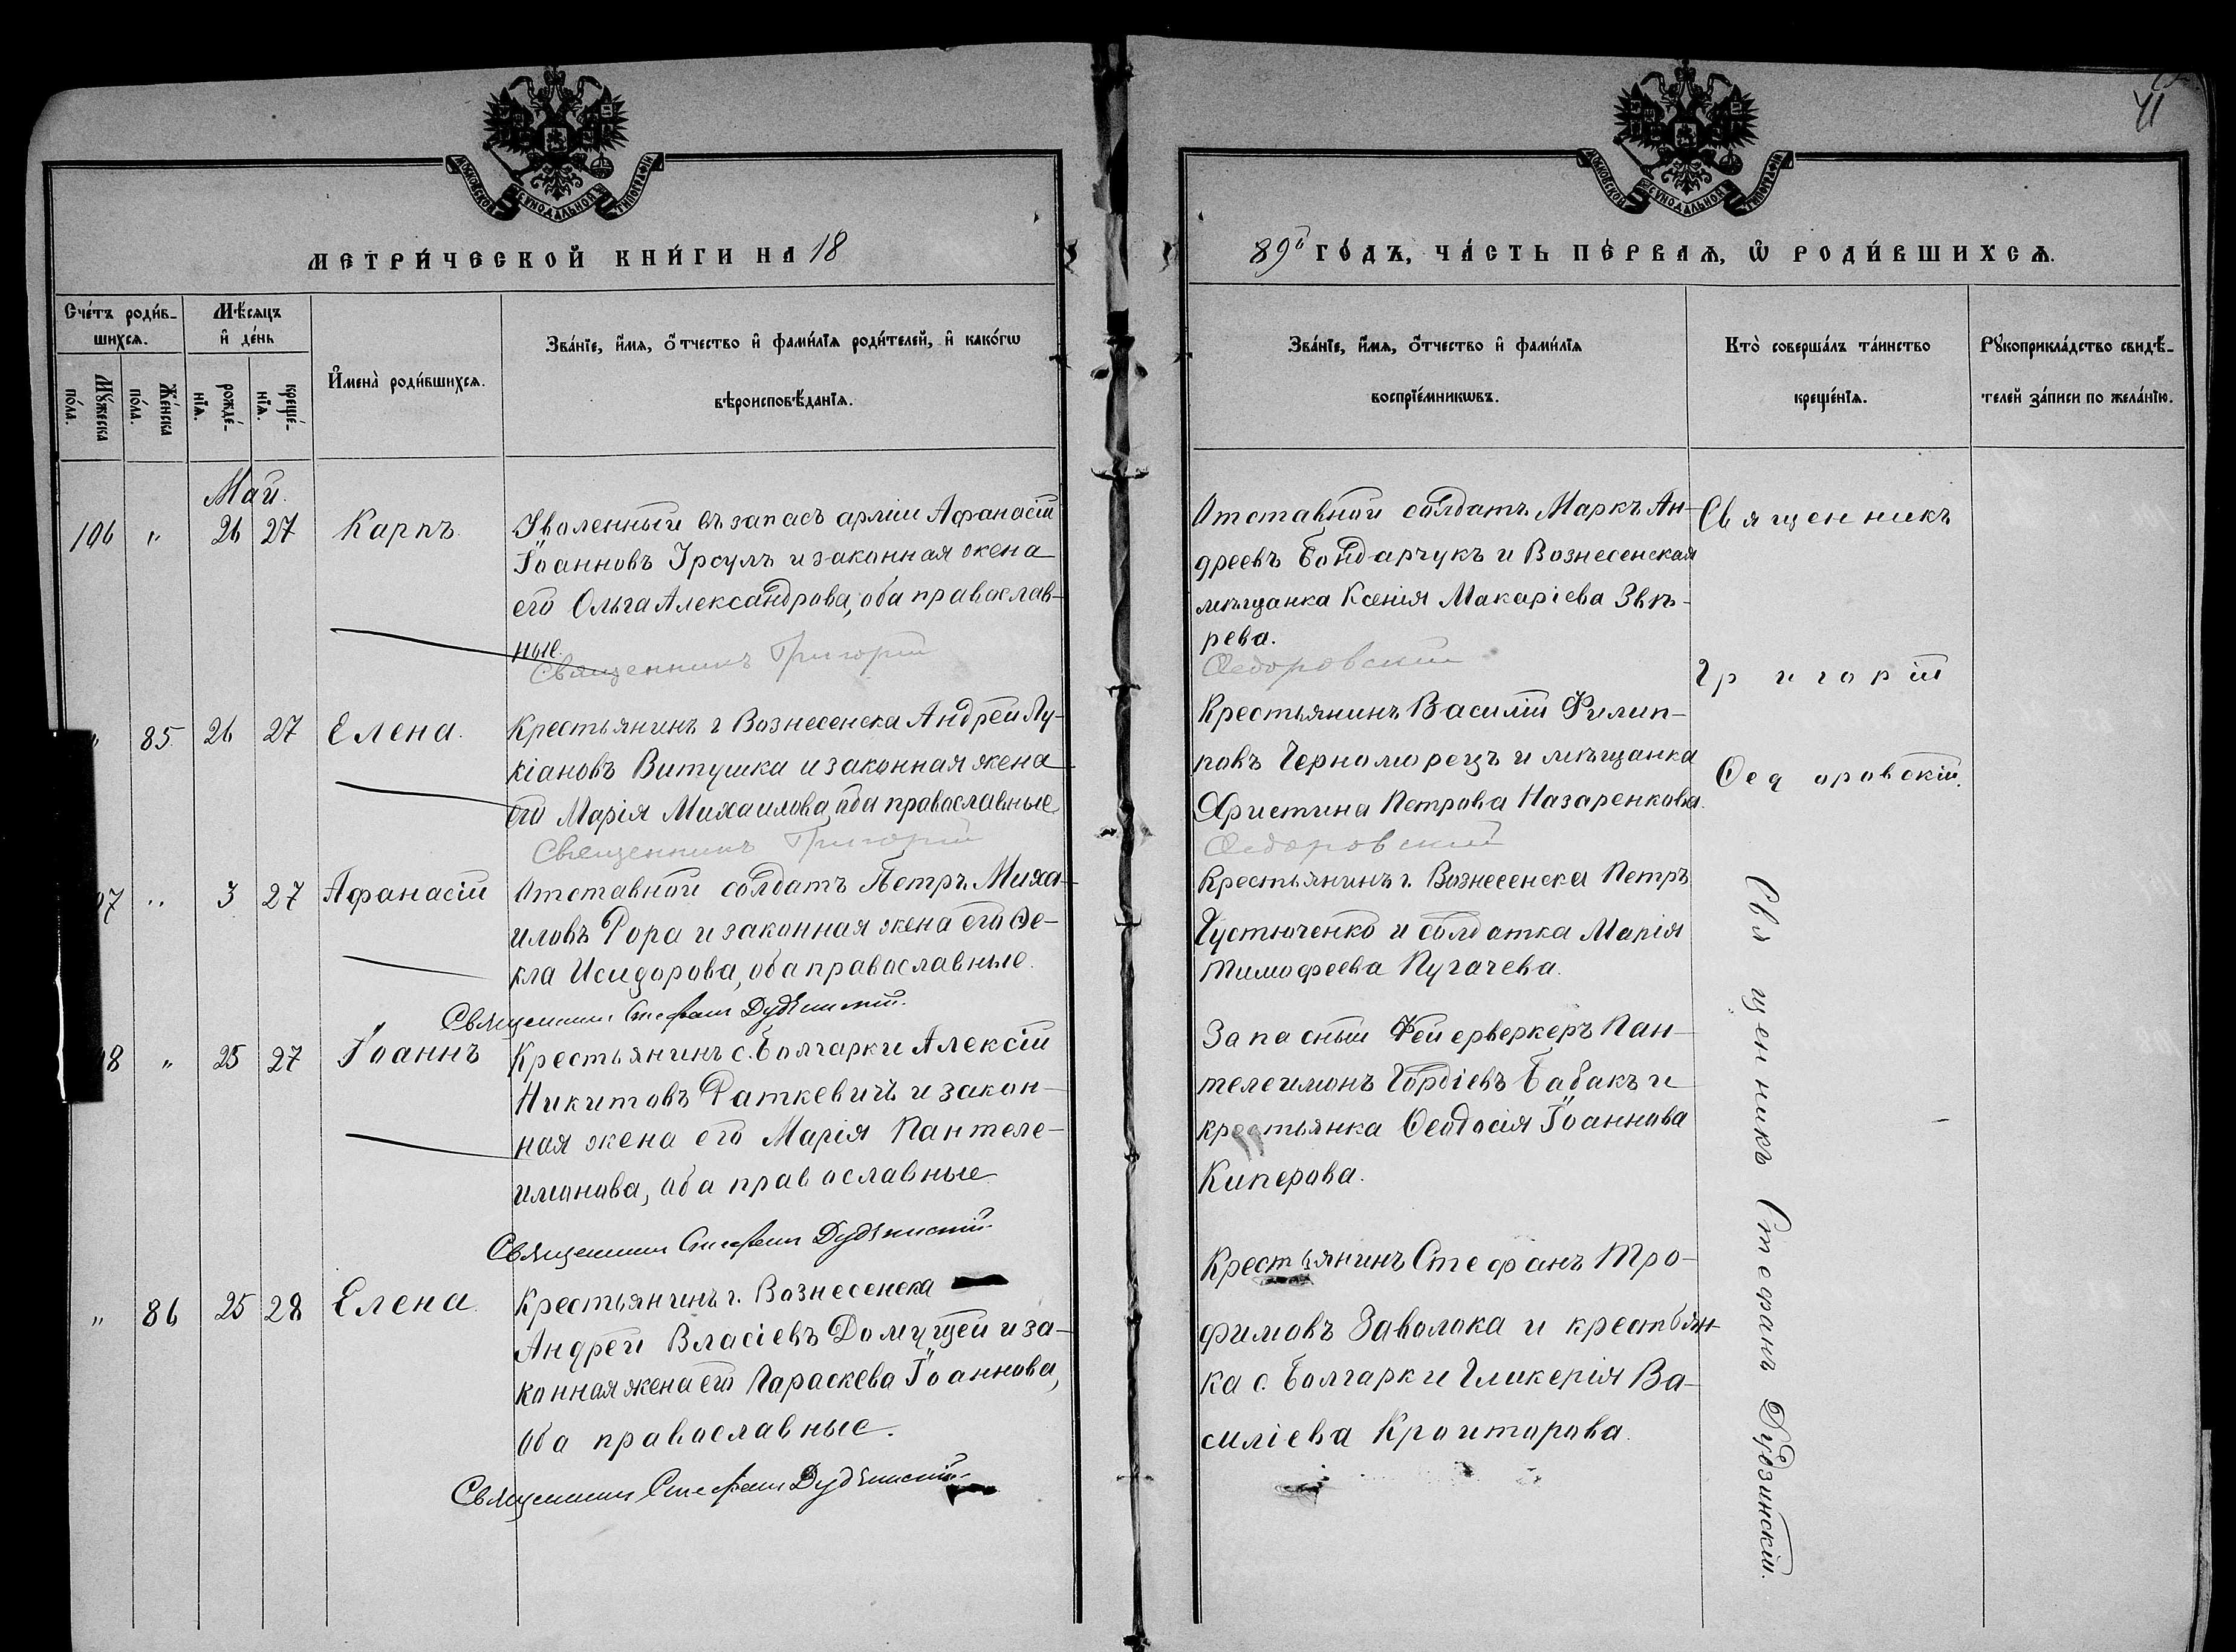 41
МОСКОВСКОЙ СѴНОДАЛЬНОЙ ТИПОГРАФІИ
МОСКОВСКОЙ СѴНОДАЛЬНОЙ ТИПОГРАФІИ
МЕТРИ́ЧЕСКОЙ КНИ́ГИ НА 18
89 ГО́ДЪ, ЧА́СТЬ ПЕ́РВАѦ, Ѡ РОДИ́ВШИХСѦ.
Счéтъ роди́в-
шихсѧ.
Мѣ́сѧцъ
и҆ дéнь
Мꙋ́жеска
пóла.
Жéнска
пóла.
рождé-
нїѧ.
крещé-
нїѧ.
И҆мена̀ роди́вшихсѧ.
Звáнїе, и҆́мѧ, ѻ҆́тчество и҆ фами́лїѧ роди́телей, и҆ какóгѡ
вѣроисповѣ́данїѧ.
Звáнїе, и҆́мѧ, ѻ҆́тчество и҆ фами́лїѧ
воспрїéмникѡвъ.
Ктò совершáлъ тáинство
крещéнїѧ.
Рꙋкоприклáдство свидѣ́-
телей зáписи по желáнїю.
Май.
106 " 26 27 Карпъ.
Уволенный въ запасъ арміи Афанасій
Іоанновъ Урсулъ и законная жена
его Ольга Александрова, оба православ-
ные.
Священникъ Григорій
Отставной солдатъ Маркъ Ан-
дреевъ Бондарчукъ и Вознесенская
мѣщанка Ксенія Макаріева Звѣ-
рева.
Ѳедоровскій
Священникъ
Григорій
Ѳедоровскій.
" 85. 26 27 Елена.
Крестьянинъ г Вознесенска Андрей Лу-
кіановъ Витушка и законная жена
его Марія Михаилова, оба православные
Священникъ Григорій
Крестьянинъ Василій Филип-
повъ Черноморецъ и мѣщанка
Христина Петрова Назаренкова.
Ѳедоровскій
07 " 3 27 Афанасій
Отставной солдатъ Петръ Миха-
иловъ Рора и законная жена его Ѳе-
кла Исидорова, оба православные.
Священникъ Стефанъ Дудзинскій.
Крестьянинъ г. Вознесенска Петръ
Густюченко и солдатка Марія
Тимофеева Пугачева.
Священникъ Стефанъ Дудзинскій.
08 " 25 27 Іоаннъ
Крестьянинъ с. Болгарки Алексій
Никитовъ Раткевичъ и закон-
ная жена его Марія Пантеле-
имонова, оба православные
Священникъ Стефанъ Дудзинскій.
Запасный Фейерверкеръ Пан-
телеимонъ Гордіевъ Бабакъ и
крестьянка Ѳеодосія Іоаннова
Киперова.
" 86 25 28 Елена.
Крестьянинъ г. Вознесенска
Андрей Власіевъ Домущей и за-
конная жена его Параскева Іоаннова,
оба православные.
Священникъ Стефанъ Дудзинскій.
Крестьянинъ Стефанъ Тро-
фимовъ Заволока и крестьян-
ка с. Болгарки Гликерія Ва-
силіева Кроиторова.